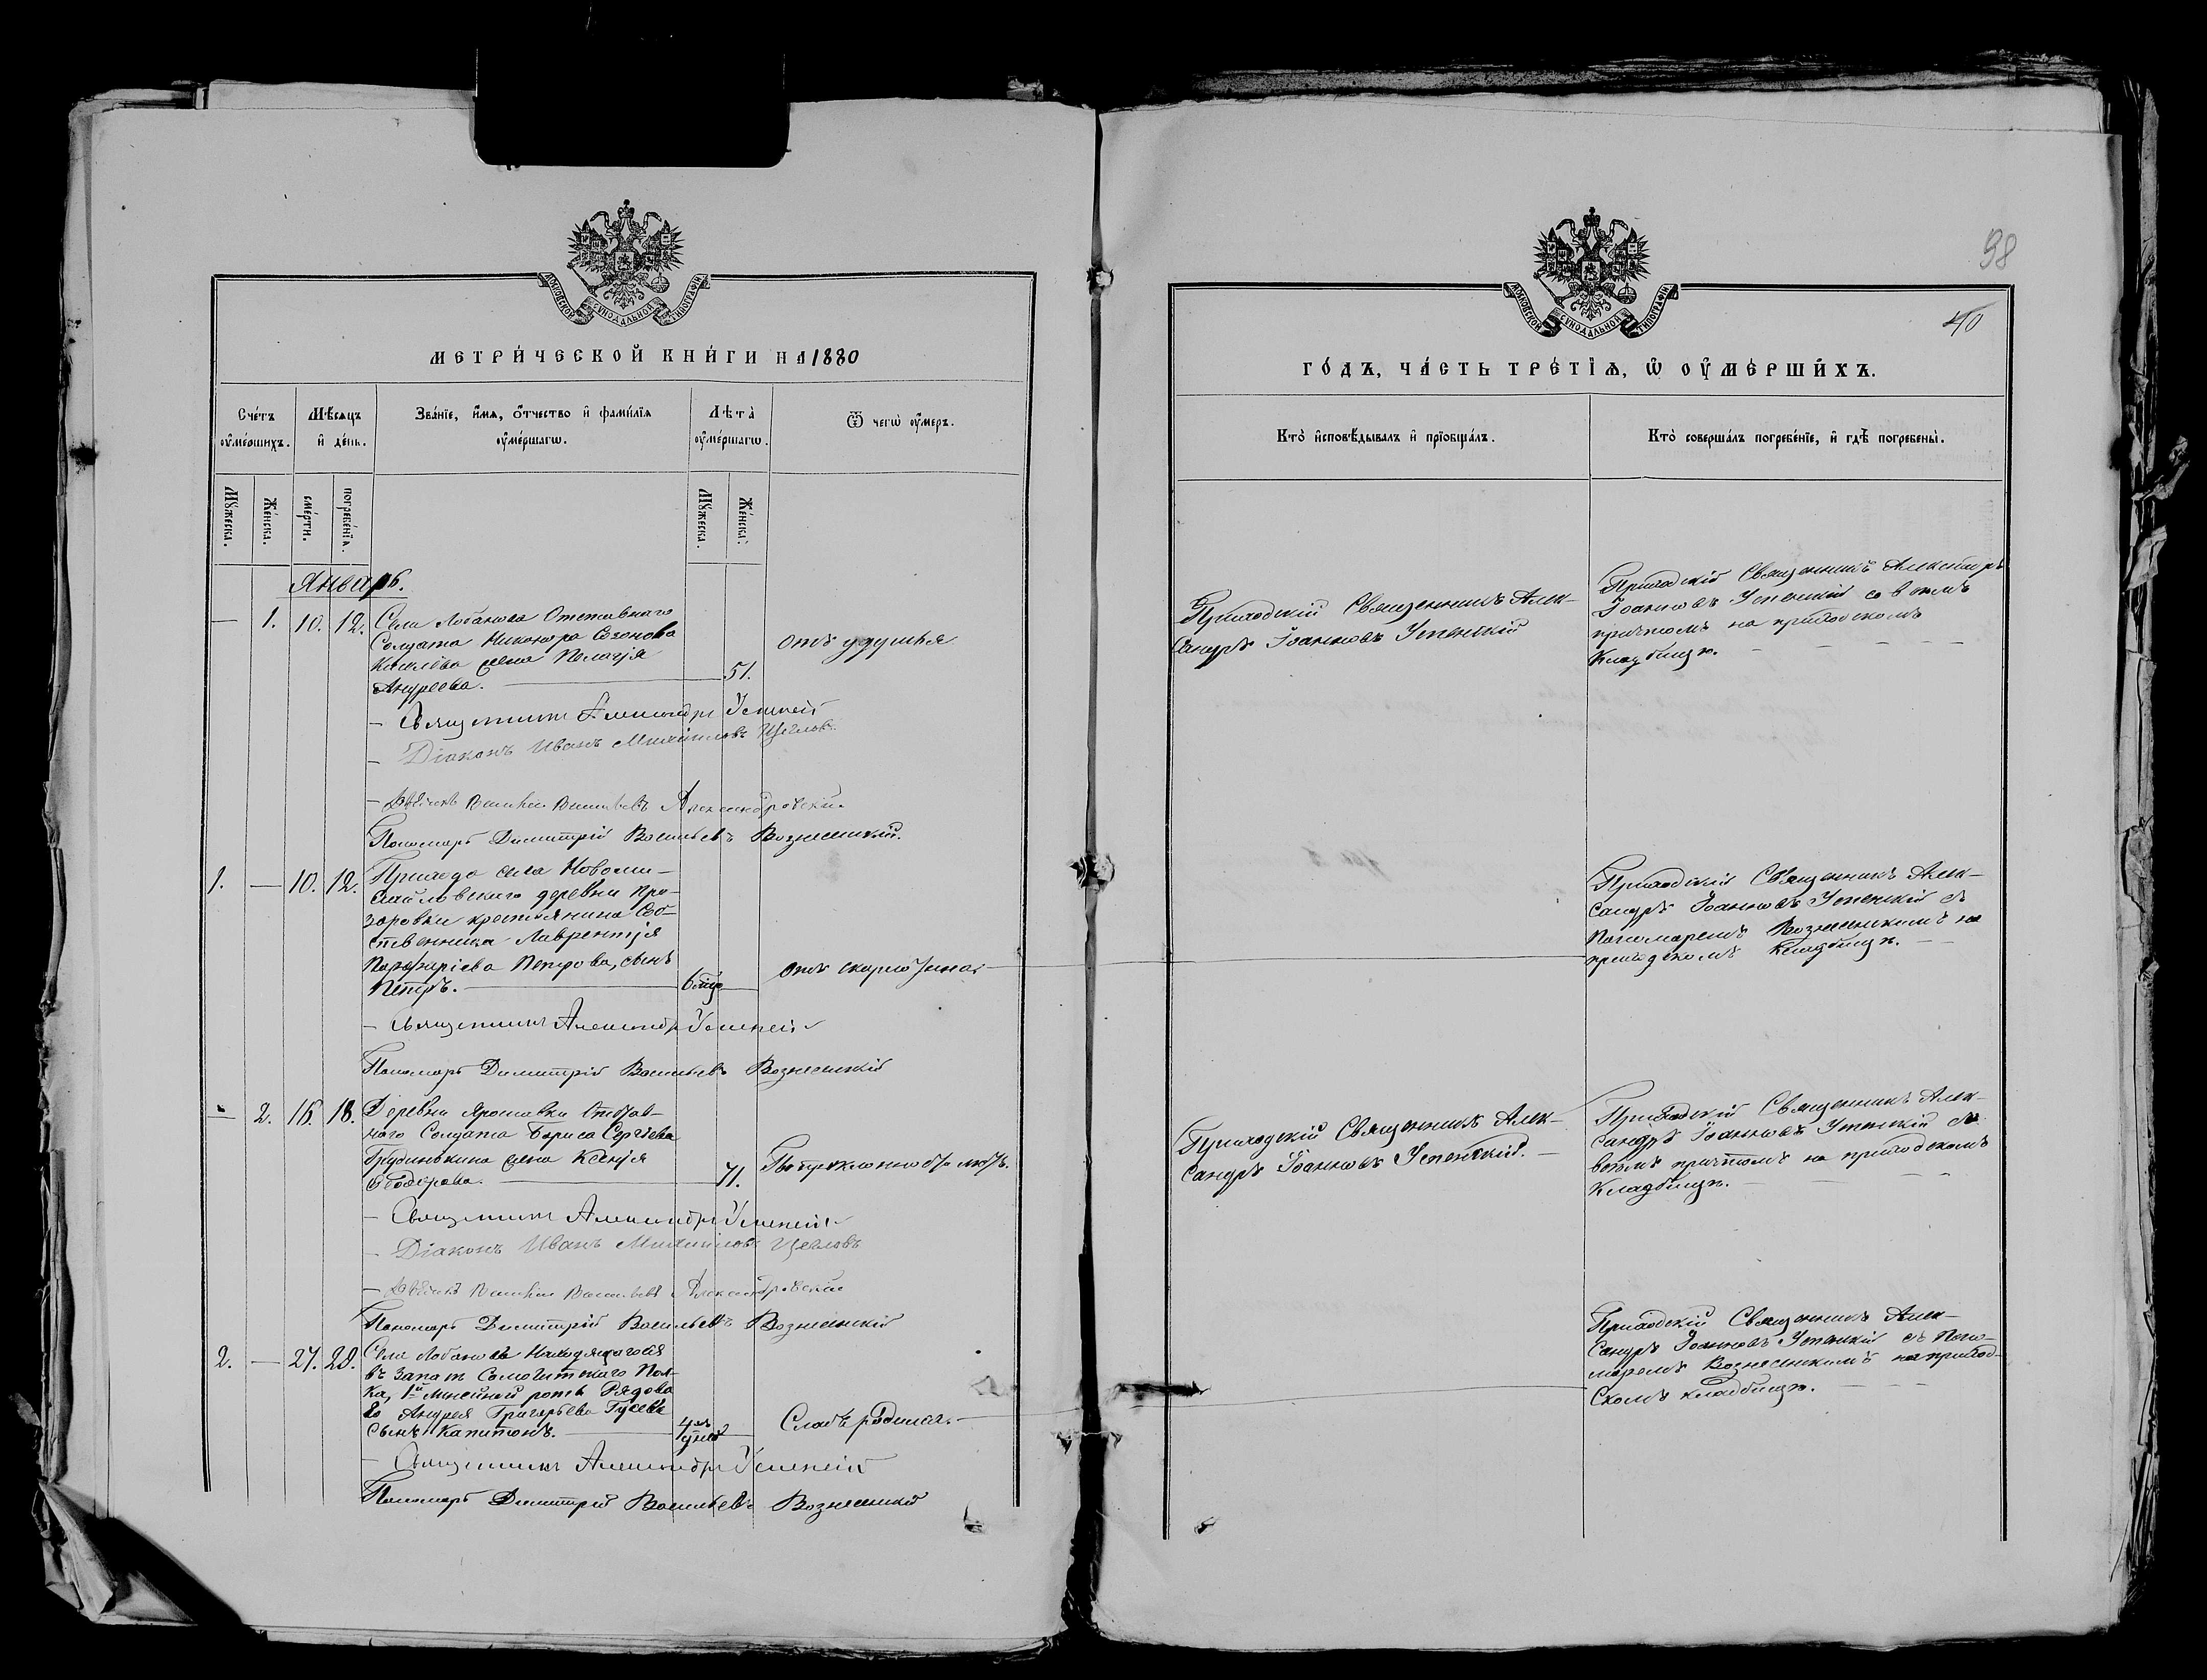 МОСКОВСКОЙ СѴНОДАЛЬНОЙ ТИПОГРАФІИ
МЕТРИ́ЧЕСКОЙ КНИ́ГИ НА 1880
Сче́тъ ᲂу҆ме́ршихъ.
Мѣ́сяцъ и҆ де́нь.
Зва́нїе, и҆́мѧ, ѻ҆́тчество и҆ фами́лїѧ ᲂу҆ме́ршагѡ.
Лѣ́та ᲂу҆ме́ршагѡ.
Ѿ чегѡ̀ ᲂу҆́меръ.
Мꙋ́жеска.
Же́нска.
сме́рти.
погребе́нїѧ.
Мꙋ́жеска.
Же́нска.
Январь.
— 1. 10. 12. Села Лобанова Отставнаго
Солдата Никанора
жена Пелагія
Андреева. 51.
отъ удушья
— Священникъ Александръ Успенскій
— Діаконъ Иванъ Михайловъ Щегловъ
— Василій Васильевъ Александровскій
Пономарь Димитрій Васильевъ Вознесенскій.
1. — 10. 12. Прихода села Новоми-
хайловскаго деревни Про-
зоровки крестьянина Соб-
ственника Лаврентія
Порфиріева Петрова, сынъ
Петръ. 6 мѣс.
отъ скарлатина
— Священникъ Александръ Успенскій
Пономарь Димитрій Васильевъ Вознесенскій
— 2. 16. 18. Деревни Ярославки Отстав-
наго Солдата Бориса Сергѣева
жена Ксенія
Ѳеодорова. 71.
Преклонность лѣтъ.
— Священникъ Александръ Успенскій
— Діаконъ Иванъ Михайловъ Щегловъ
— Василій Васильевъ Александровскій
Пономарь Димитрій Васильевъ Вознесенскій
2. — 27. 28. Села Лобанова Находящагося
въ запасѣ Самогитскаго Пол-
ка, 1й Линейной роты Рядова-
го Андрея Григорьева Гусева
сынъ Капитонъ. дней
Слабъ родился.
— Священникъ Александръ Успенскій
Пономарь Димитрій Васильевъ Вознесенскій
98
40
МОСКОВСКОЙ СѴНОДАЛЬНОЙ ТИПОГРАФІИ
ГО́ДЪ, ЧА́СТЬ ТРЕ́ТЇѦ, Ѡ҆ ОУ҆МЕ́РШИХЪ.
Кто̀ и҆сповѣ́дывалъ и҆ прїѡбща́лъ.
Кто̀ соверша́лъ погребе́нїе, и҆ гдѣ̀ погребены̀.
Приходскій Священникъ Алек-
сандръ Іоанновъ Успенскій
Приходскій Священникъ Александръ
Іоанновъ Успенскій со всѣмъ
причтомъ на приходскомъ
кладбищѣ.
Приходскій Священникъ Алек-
сандръ Іоанновъ Успенскій съ
Пономаремъ Вознесенскимъ на
приходскомъ кладбищѣ.
Приходскій Священникъ Алек-
сандръ Іоанновъ Успенскій.
Приходскій Священникъ Алек-
сандръ Іоанновъ Успенскій со
всѣмъ причтомъ на приходскомъ
кладбищѣ.
Приходскій Священникъ Алек-
сандръ Іоанновъ Успенскій съ Поно-
маремъ Вознесенскимъ на приход-
скомъ кладбищѣ.